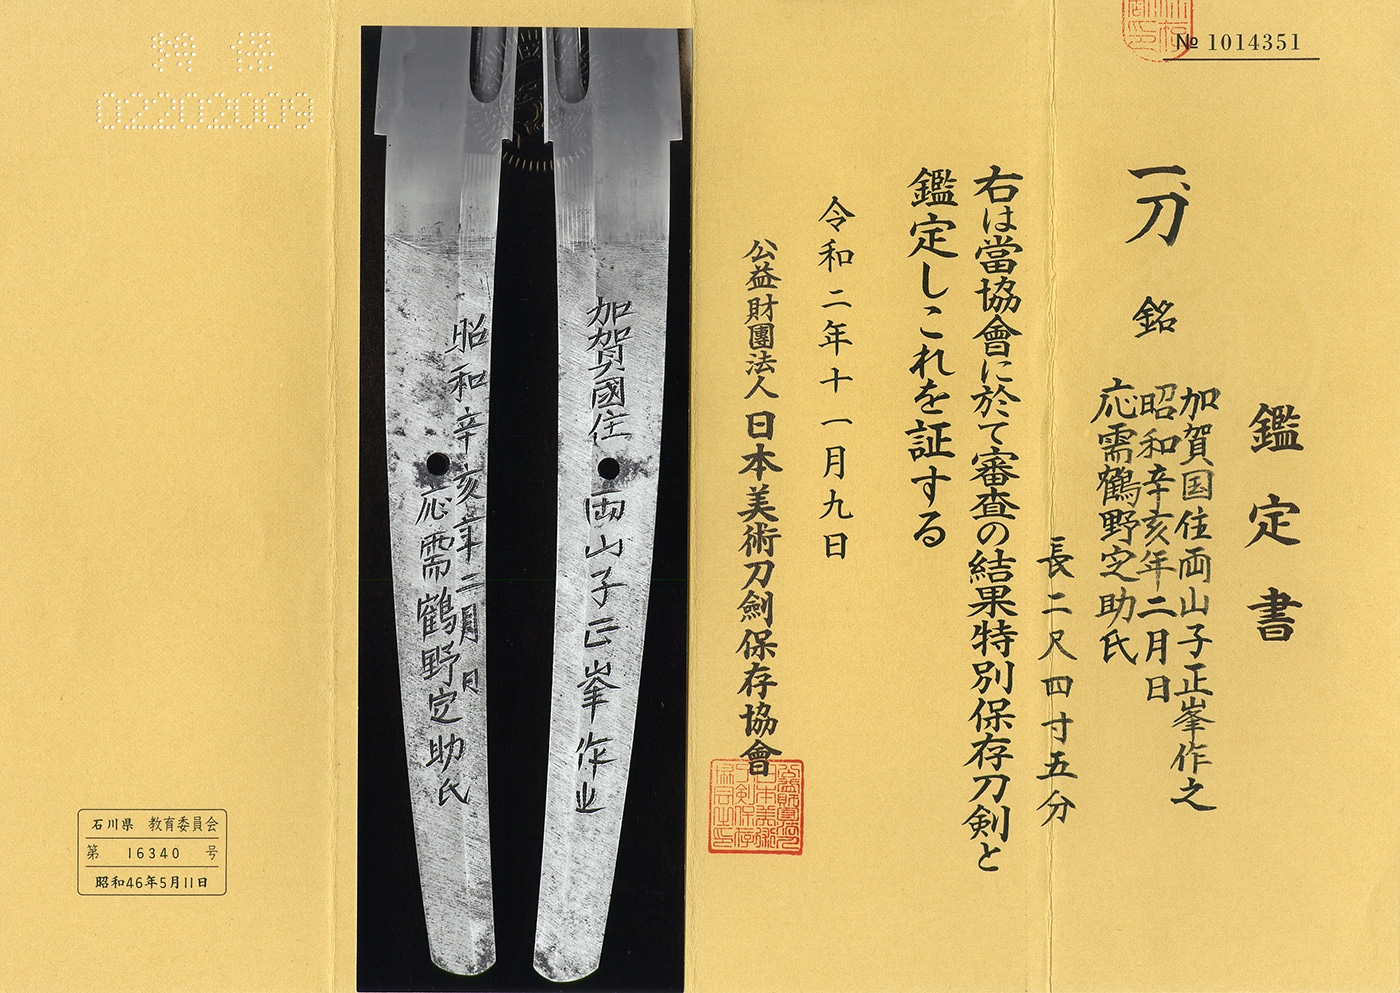 № 1014351
鑑定書
一、刀 銘
加賀国住両山子正峯作之
昭和辛亥年二月日
応需鶴野定助氏
長二尺四寸五分
右は當協會に於て審査の結果特別保存刀剣と
鑑定しこれを証する
令和二年十一月九日
公益財團法人日本美術刀劍保存協會
加賀國住両山子正峯作之
昭和辛亥年二月日
応需鶴野定助氏
特保
02202009
石川県 教育委員会
第 16340 号
昭和46年5月11日